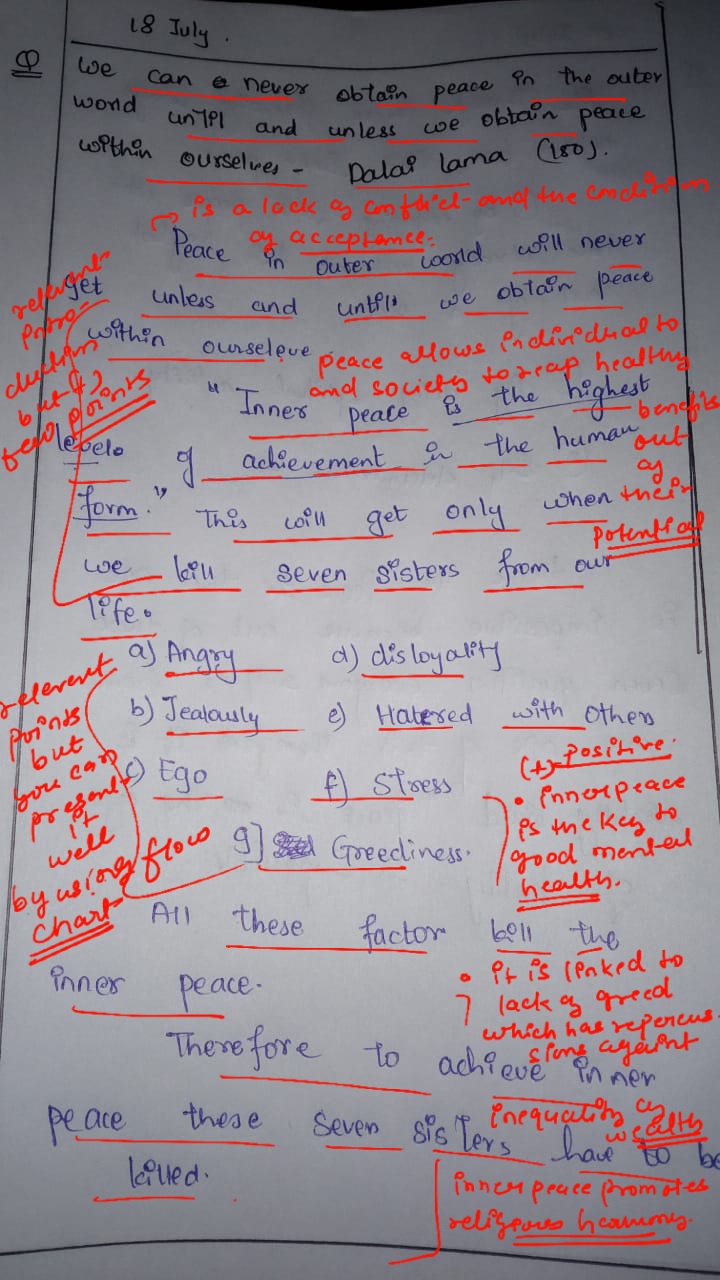 18 July.
Q
We can never obtain peace in the outer
world until and unless we obtain peace
within ourselves - Dalai lama (150).
→ is a lack of conflict and the condition
of acceptance.
Peace in outer world will never
get unless and until we obtain peace
within ourseleve
relevant
intro-
duction
but (+)
few points
peace allows individual to
and society to reap healthy
benefits
out
of
their
potential
"Inner peace is the highest
levelo of achievement in the human
form." This will get only when
we kill seven sisters from our
life.
a) Angry d) disloyality
b) Jealously e) Hatered with others
c) Ego f) Stress
g] Greediness.
relevent
points
but
you can
present
it
well
by using flow
chart
(+) Positive.
• inner peace
is the key to
good mental
health.
All these factor kill the
inner peace.
• it is linked to
lack of greed
which has repercus
sions against
inequality of
wealth
Therefore to achieve inner
peace these seven sisters have to be
killed.
inner peace promotes
religeous harmony.